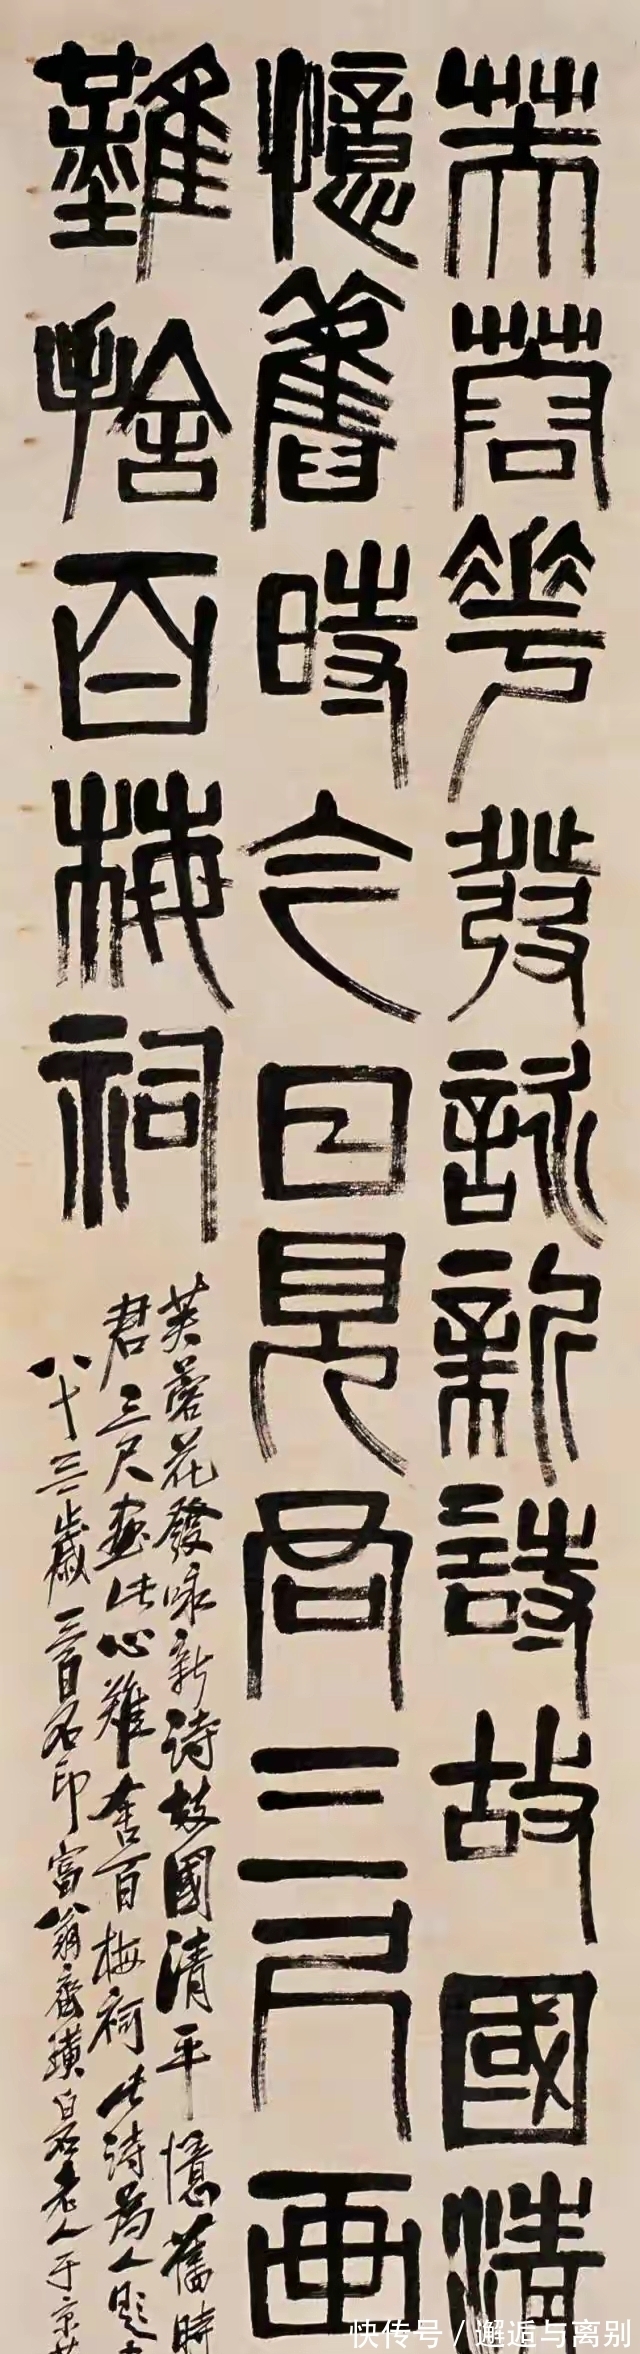 芙蓉花發詠新詩故國清
憶舊時今日見君三尺画
難捨百梅祠
芙蓉花發咏新诗故國清平憶舊時
君三尺画此心難舍百梅祠此诗為人題
八十三歲三百石印富翁齊璜白石老人于京
快传号/邂逅与离别